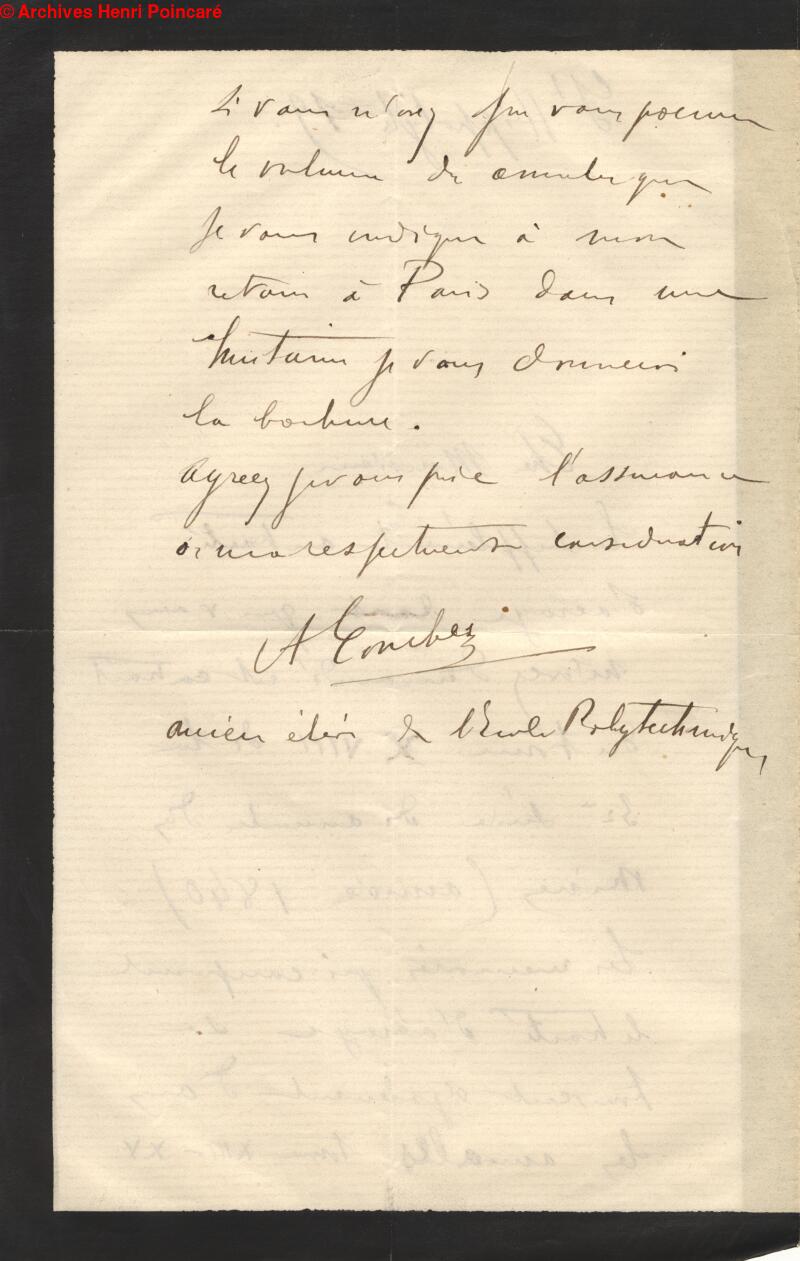 © Archives Henri Poincaré
Si vous n'avez pu vous procurer
le volume des annales que
je vous indique à mon
retour à Paris dans une
huitaine je vous donnerai
la brochure.
Agréez je vous prie l'assurance
de ma respectueuse considération
A
ancien élève de l'Ecole Polytechnique